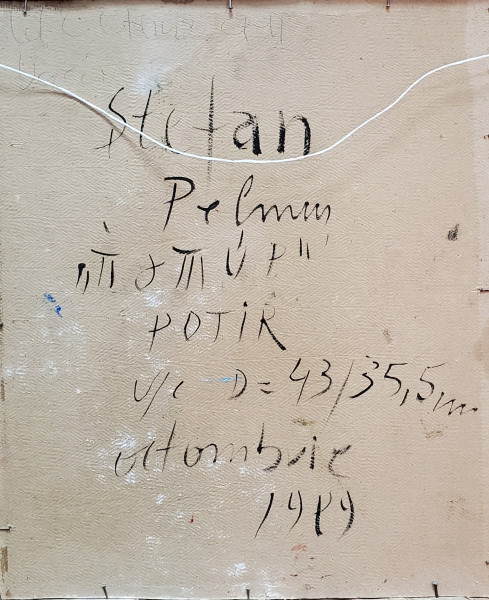 Stefan
Pelmus
POTIR
u/c D= 43/35,5 cm
octombrie
1989